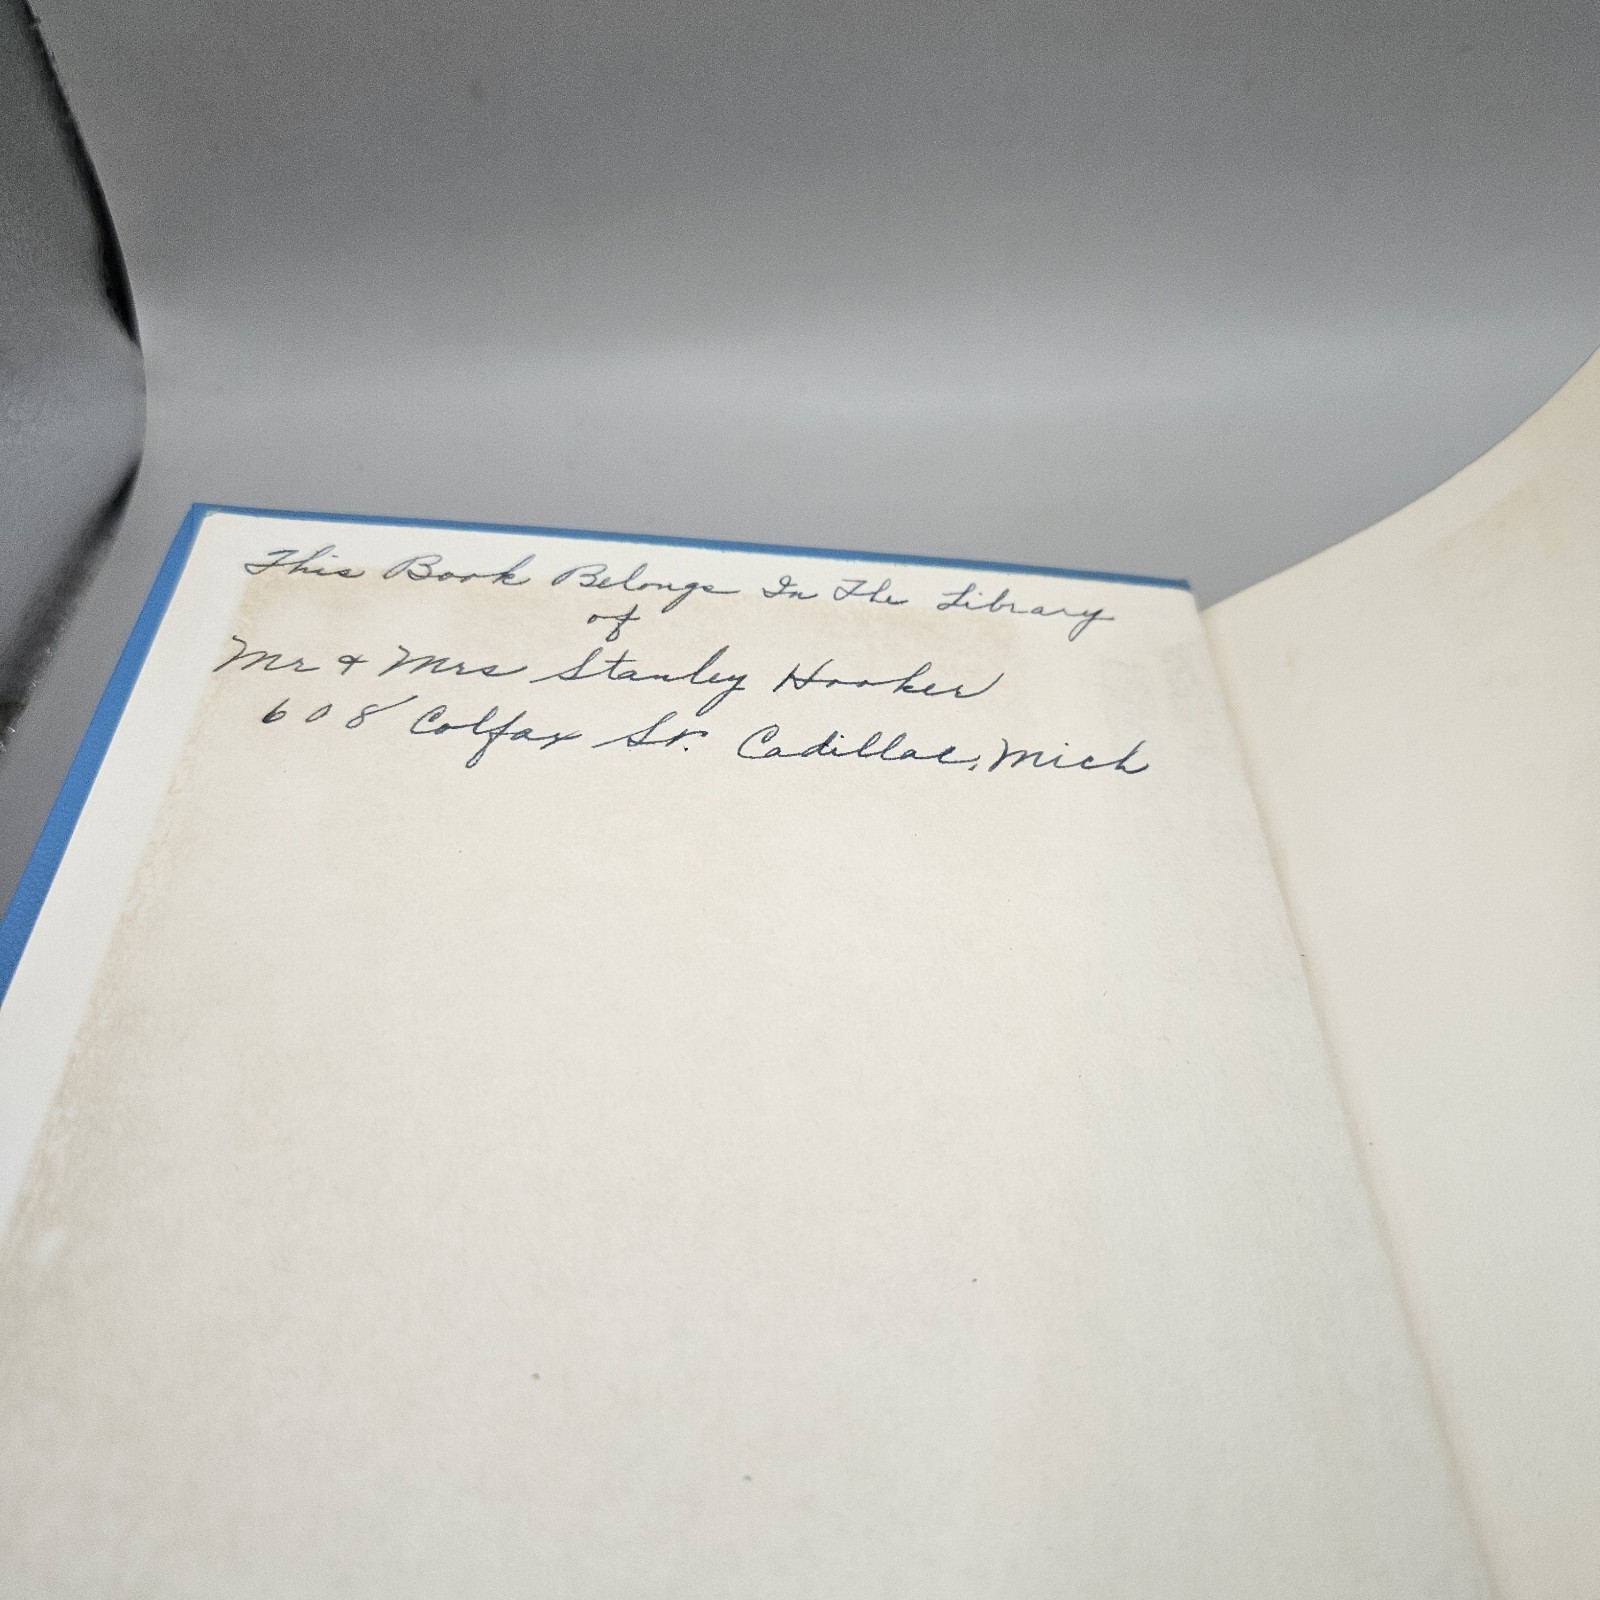 This Book Belongs In The Library
of
Mr & Mrs Stanley Hooker
608 Colfax St. Cadillac, Mich